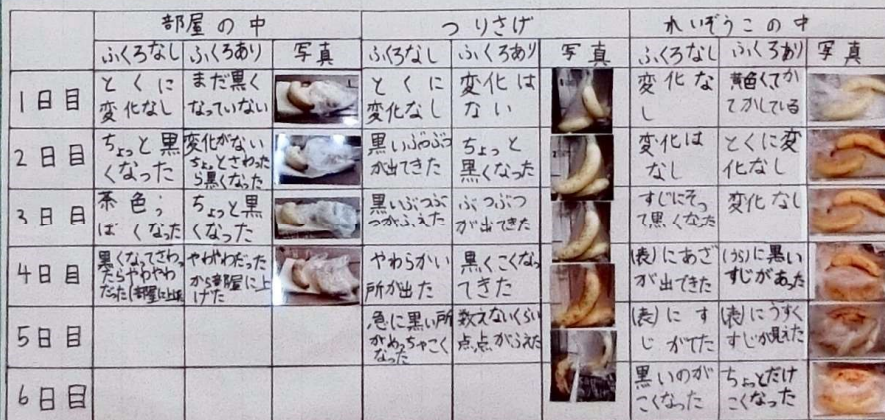 部屋の中 つりさげ れいぞうこの中
ふくろなし ふくろあり 写真 ふくろなし ふくろあり 写真 ふくろなし ふくろあり 写真
1日目
とくに
変化なし
まだ黒く
なっていない
とくに
変化なし
変化は
ない
変化な
し
黄色くてか
てかしている
2日目
ちょっと黒
くなった
変化がない
ちょっとさわった
ら黒くなった
黒いぶつぶつ
が出てきた
ちょっと
黒くなった
変化は
なし
とくに変
化なし
3日目
茶色っ
ぽくなった
ちょっと黒
くなった
黒いぶつぶ
つがふえた
ぶつぶつ
が出てきた
すじにそっ
て黒くなった
変化なし
4日目
黒くなってさわっ
たらやわやわ
だった
やわやわだった
から部屋に上
げた
やわらかい
所が出た
黒くこくなっ
てきた
(表)にあざ
が出てきた
(うら)に黒い
すじがあった
5日目
急に黒い所
がめっちゃこく
なった
数えないくらい
点点がふえた
(表)にす
じがでた
(表)にうすく
すじが見えた
6日目
黒いのが
こくなった
ちょっとだけ
こくなった